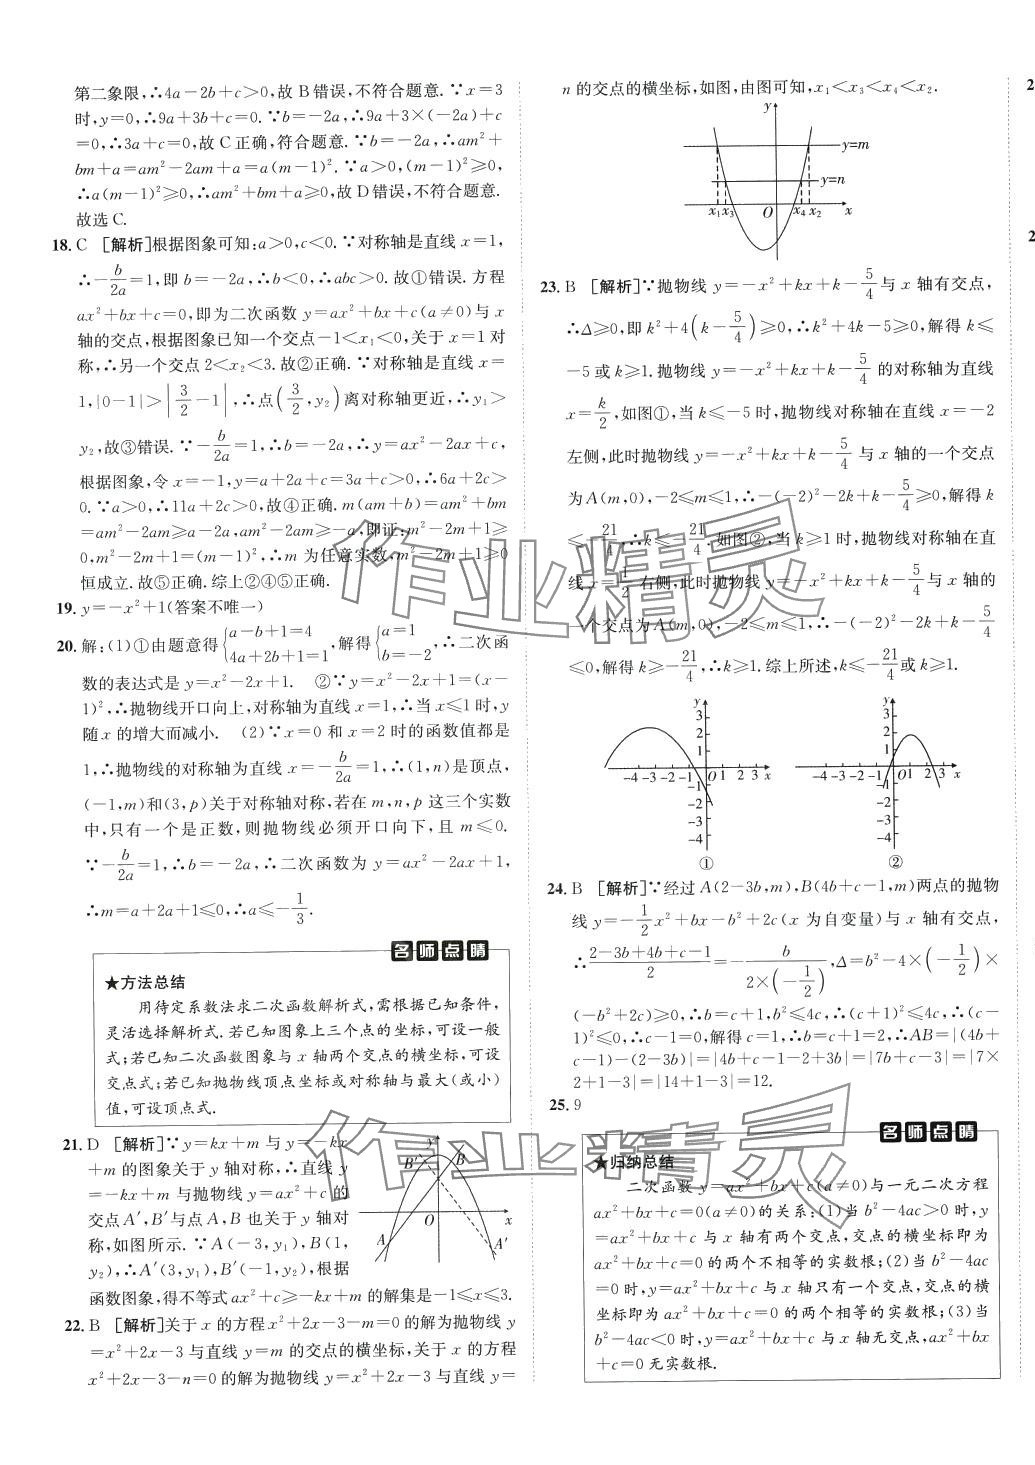 第二象限,∴4a-2b+c>0,故B错误,不符合题意.∵x=3
时,y=0,∴9a+3b+c=0.∵b=-2a,∴9a+3×(-2a)+c
=0,∴3a+c=0,故C正确,符合题意.∵b=-2a,∴am²+
bm+a=am²-2am+a=a(m-1)².∵a>0,(m-1)²≥0,
∴a(m-1)²≥0,∴am²+bm+a≥0,故D错误,不符合题意.
故选C.
18. C [解析]根据图象可知:a>0,c<0.∵对称轴是直线x=1,
∴-b/2a=1,即b=-2a,∴b<0,∴abc>0.故①错误.方程
ax²+bx+c=0,即为二次函数y=ax²+bx+c(a≠0)与x
轴的交点,根据图象已知一个交点-1<x₁<0,关于x=1对
称,∴另一个交点2<x₂<3.故②正确.∵对称轴是直线x=
1,|0-1|>|3/2-1|,∴点(3/2,y₂)离对称轴更近,∴y₁>
y₂,故③错误.∵-b/2a=1,∴b=-2a,∴y=ax²-2ax+c,
根据图象,令x=-1,y=a+2a+c=3a+c>0,∴6a+2c>
0.∵a>0,∴11a+2c>0,故④正确.m(am+b)=am²+bm
=am²-2am≥a-2a,am²-2am≥-a,即证:m²-2m+1≥
0,m²-2m+1=(m-1)²,∴m为任意实数,m²-2m+1≥0
恒成立.故⑤正确.综上②④⑤正确.
19. y=-x²+1(答案不唯一)
20. 解:(1)①由题意得{a-b+1=4 4a+2b+1=1,解得{a=1 b=-2,∴二次函
数的表达式是y=x²-2x+1. ②∵y=x²-2x+1=(x-
1)²,∴抛物线开口向上,对称轴为直线x=1,∴当x≤1时,y
随x的增大而减小. (2)∵x=0和x=2时的函数值都是
1,∴抛物线的对称轴为直线x=-b/2a=1,∴(1,n)是顶点,
(-1,m)和(3,p)关于对称轴对称,若在m,n,p这三个实数
中,只有一个是正数,则抛物线必须开口向下,且m≤0.
∵-b/2a=1,∴b=-2a,∴二次函数为y=ax²-2ax+1,
∴m=a+2a+1≤0,∴a≤-1/3.
名师点睛
★方法总结
用待定系数法求二次函数解析式,需根据已知条件,
灵活选择解析式.若已知图象上三个点的坐标,可设一般
式;若已知二次函数图象与x轴两个交点的横坐标,可设
交点式;若已知抛物线顶点坐标或对称轴与最大(或小)
值,可设顶点式.
21. D [解析]∵y=kx+m与y=-kx
+m的图象关于y轴对称,∴直线y
=-kx+m与抛物线y=ax²+c的
交点A′,B′与点A,B也关于y轴对
称,如图所示.∵A(-3,y₁),B(1,
y₂),∴A′(3,y₁),B′(-1,y₂),根据
函数图象,得不等式ax²+c≥-kx+m的解集是-1≤x≤3.
y
B′ B
O x
A A′
22. B [解析]关于x的方程x²+2x-3-m=0的解为抛物线y
=x²+2x-3与直线y=m的交点的横坐标,关于x的方程
x²+2x-3-n=0的解为抛物线y=x²+2x-3与直线y=
n的交点的横坐标,如图,由图可知,x₁<x₃<x₄<x₂.
y
y=m
y=n
x₁ x₃ O x₄ x₂ x
23. B [解析]∵抛物线y=-x²+kx+k-5/4与x轴有交点,
∴Δ≥0,即k²+4(k-5/4)≥0,∴k²+4k-5≥0,解得k≤
-5或k≥1.抛物线y=-x²+kx+k-5/4的对称轴为直线
x=k/2,如图①,当k≤-5时,抛物线对称轴在直线x=-2
左侧,此时抛物线y=-x²+kx+k-5/4与x轴的一个交点
为A(m,0),-2≤m≤1,∴-(-2)²-2k+k-5/4≥0,解得k
≤-21/4,∴k≤-21/4.如图②,当k≥1时,抛物线对称轴在直
线x=1/2右侧,此时抛物线y=-x²+kx+k-5/4与x轴的
一个交点为A(m,0),-2≤m≤1,∴-(-2)²-2k+k-5/4
≤0,解得k≥-21/4,∴k≥1.综上所述,k≤-21/4或k≥1.
y
3
2
1
-4 -3 -2 -1 O 1 2 3 x
-1
-2
-3
-4
①
y
3
2
1
-4 -3 -2 -1 O 1 2 3 x
-1
-2
-3
-4
②
24. B [解析]∵经过A(2-3b,m),B(4b+c-1,m)两点的抛物
线y=-1/2x²+bx-b²+2c(x为自变量)与x轴有交点,
∴(2-3b+4b+c-1)/2=-b/(2×(-1/2)),Δ=b²-4×(-1/2)×
(-b²+2c)≥0,∴b=c+1,b²≤4c,∴(c+1)²≤4c,∴(c-
1)²≤0,∴c-1=0,解得c=1,∴b=c+1=2,∴AB=|(4b+
c-1)-(2-3b)|=|4b+c-1-2+3b|=|7b+c-3|=|7×
2+1-3|=|14+1-3|=12.
25. 9
名师点睛
★归纳总结
二次函数y=ax²+bx+c(a≠0)与一元二次方程
ax²+bx+c=0(a≠0)的关系:(1)当b²-4ac>0时,y=
ax²+bx+c与x轴有两个交点,交点的横坐标即为
ax²+bx+c=0的两个不相等的实数根;(2)当b²-4ac
=0时,y=ax²+bx+c与x轴只有一个交点,交点的横
坐标即为ax²+bx+c=0的两个相等的实数根;(3)当
b²-4ac<0时,y=ax²+bx+c与x轴无交点,ax²+bx
+c=0无实数根.
作业精灵
作业精灵
2
2